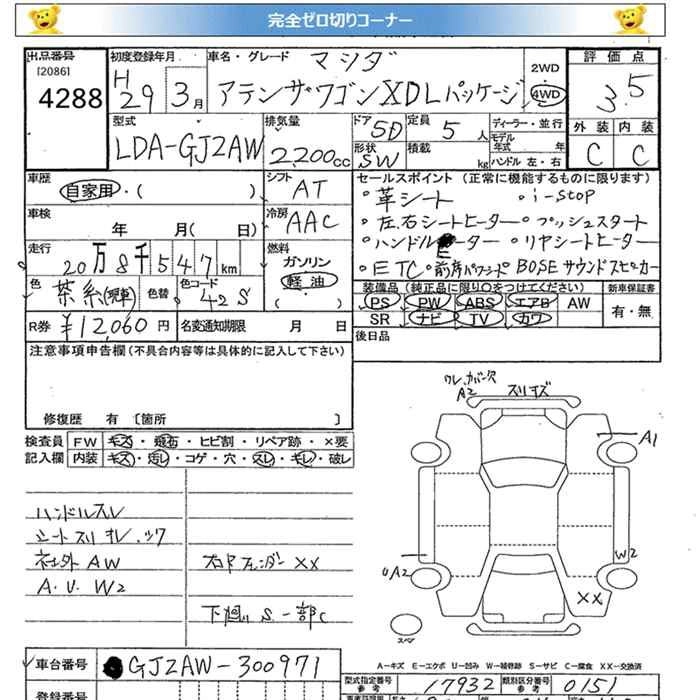 完全ゼロ切りコーナー
出品番号 初度登録年月 車名・グレード マツダ 2WD 評価点
[2086] 4288 H29 3月 アテンザワゴン XDLパッケージ 4WD 3.5
型式 排気量 ドア 5D 定員 5人 ディーラー・並行 外装 内装
LDA-GJ2AW 2,200cc 形状 SW 積載 kg モデル年式 年 ハンドル 左・右 C C
車歴 シフト AT セールスポイント(正常に機能するものに限ります)
自家用・( )
・革シート ・i-stop
車検 年 月( 日) 冷房 AAC ・左右シートヒーター ・プッシュスタート
・ハンドルヒーター ・リヤシートヒーター
走行 20万8千547km 燃料 ガソリン 軽油 ・ETC ・前席パワーシート BOSEサウンドスピーカー
色 茶系 色替 色コード 42S 装備品(純正品に限り○をつけてください) 新車保証書
PS PW ABS エアB AW 有・無
R券 ¥12,060円 名変通知期限 月 日 SR ナビ TV カワ
注意事項申告欄(不具合内容等は具体的に記入して下さい) 後日品
修復歴 有 〔箇所 〕
検査員 FW キズ・飛石・ヒビ割・リペア跡・×要
記入欄 内装 キズ・汚レ・コゲ・穴・スレ・キレ・破レ
A2 スリキズ
A1
ハンドルスレ
シートスリ オレ、ツワ
社外AW 右Rフェンダー XX
A.U.W2
下廻リ S一部C
UA2 W2
XX
スペア
A−キズ E−エクボ U−凹み W−補修跡 S−サビ C−腐食 XX−交換済
車台番号 GJ2AW-300971
型式指定番号 参考 17932 類別区分番号 参考 0151
登録番号